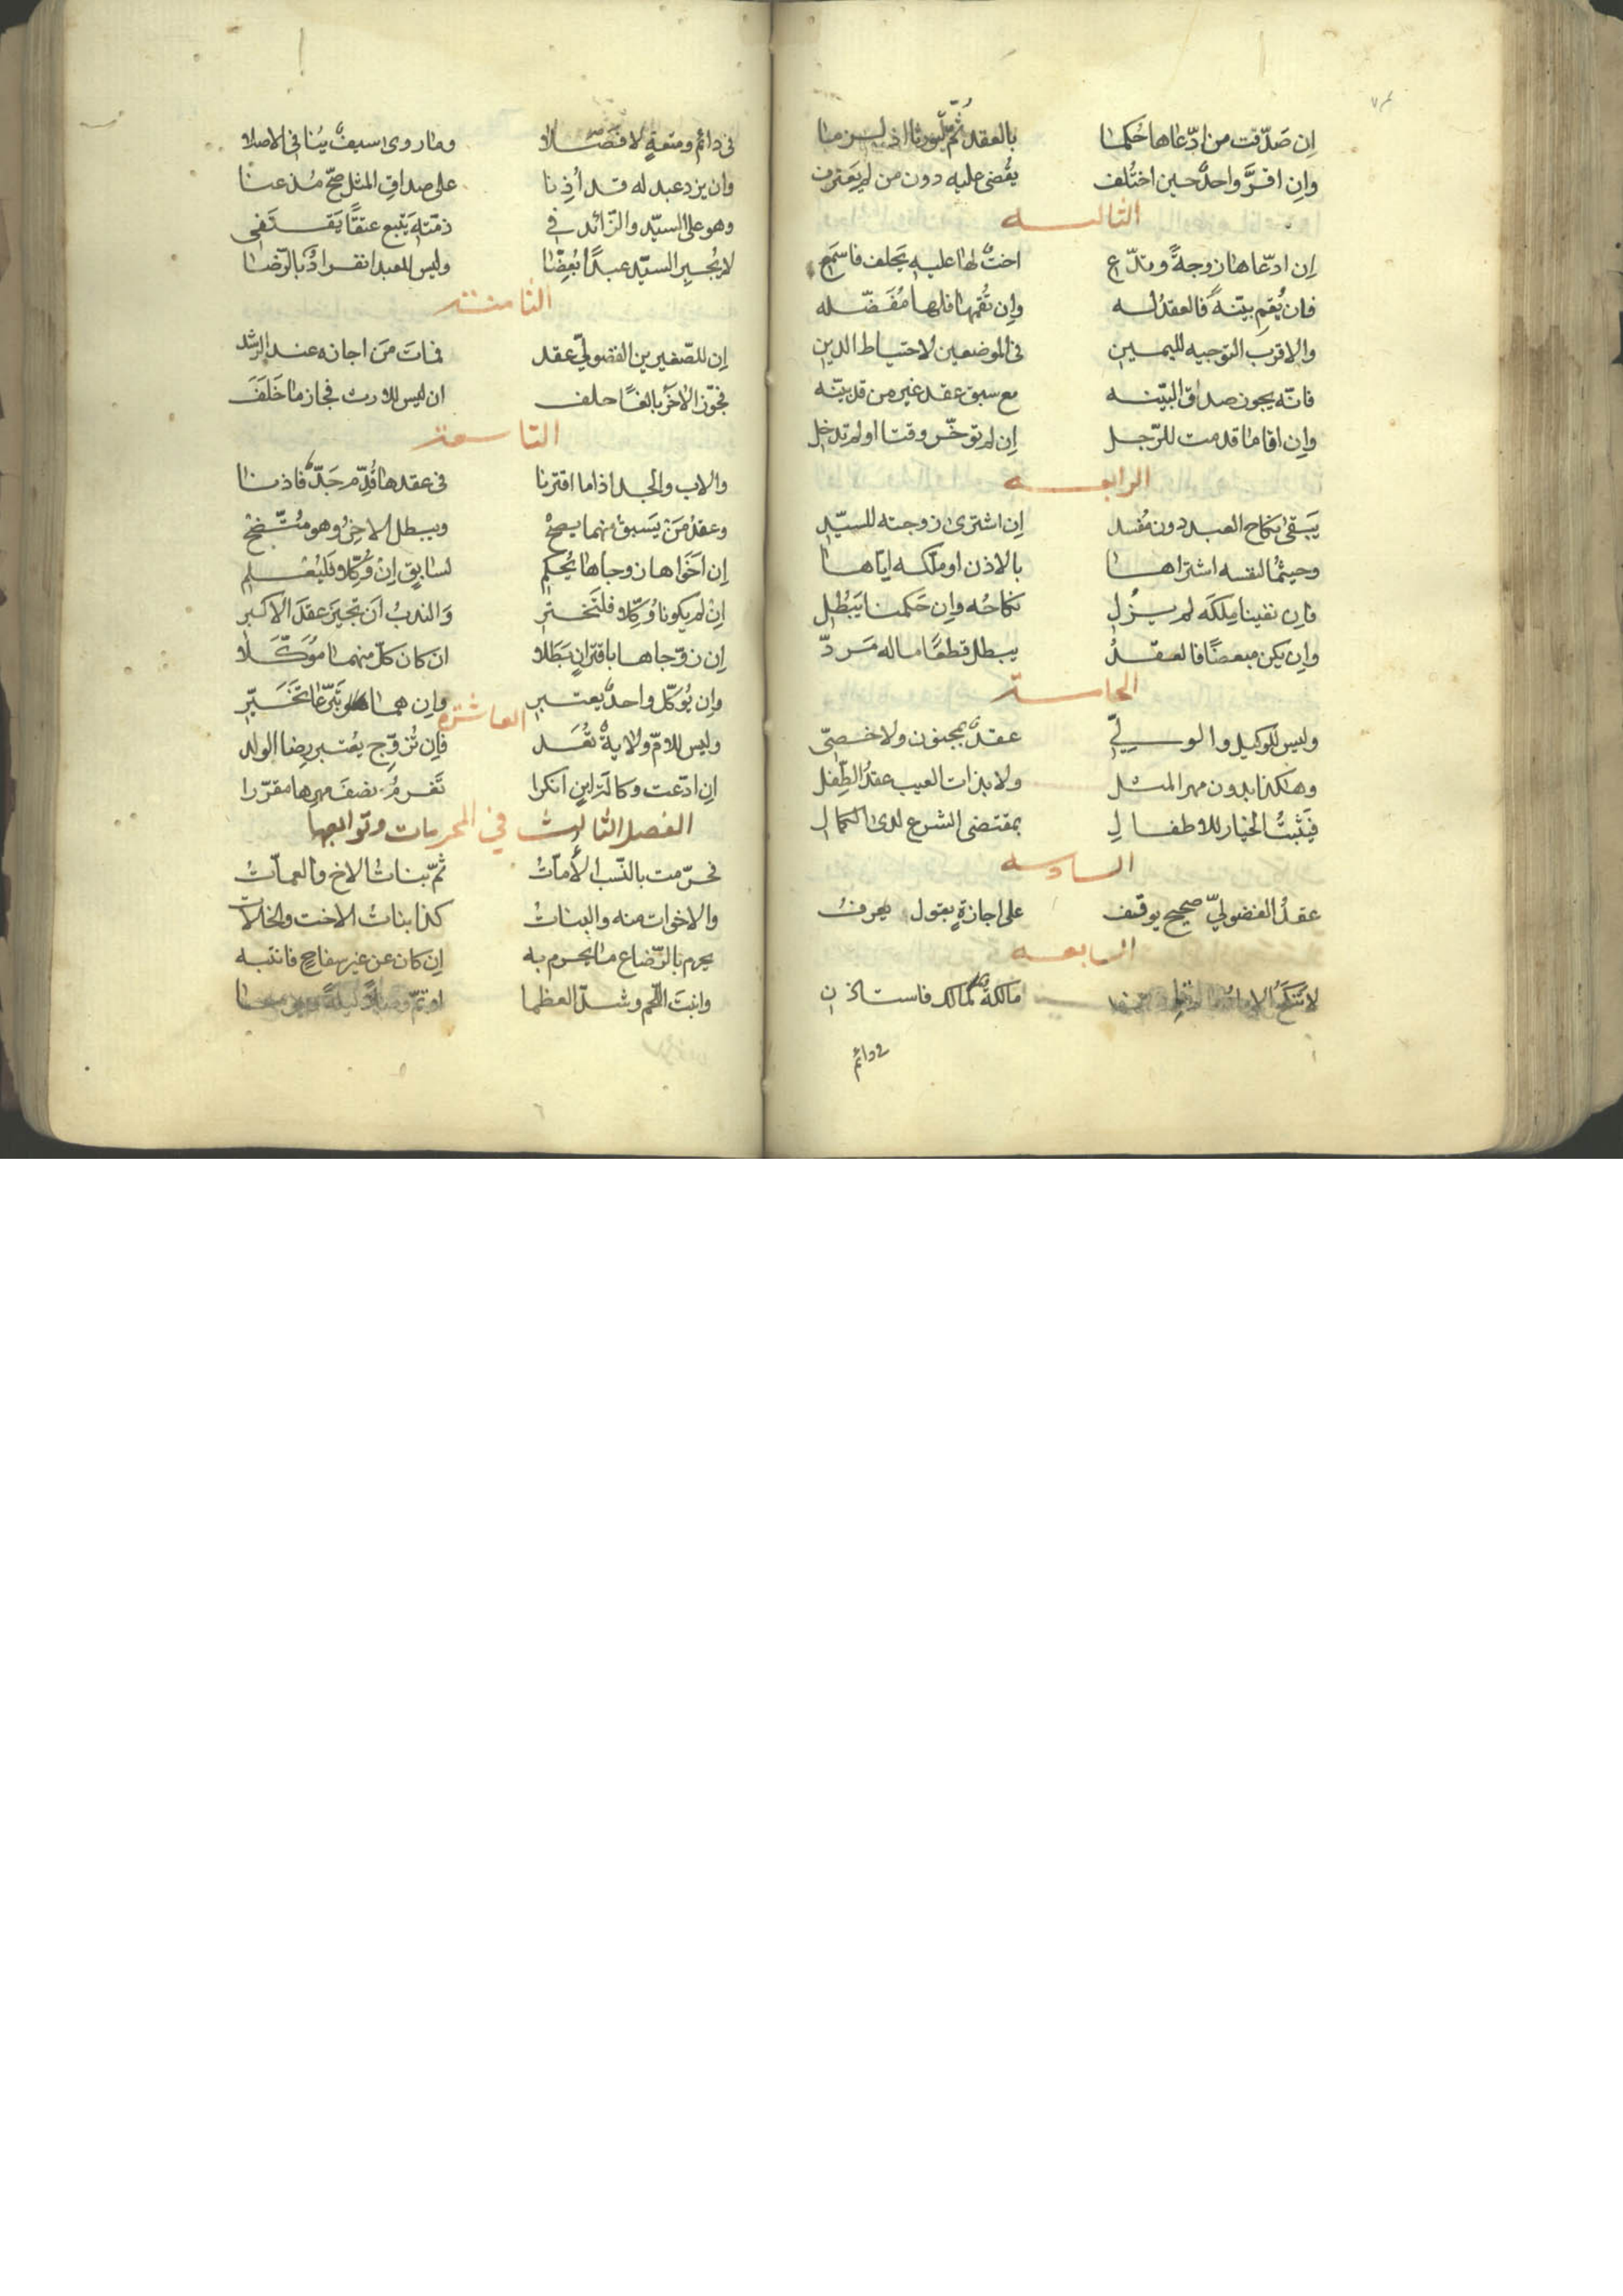 إن صدّقت من ادّعاها حُكما بالعقد ثمّ
وإن اقرَّ واحدٌ حين اختُلف يُقضى عليه دون من لم يَعترف
الثالثـــه
إن ادّعاها زوجةً وتدّع اختٌ لها عليه يحلف فاسمَع
فان يُقم بيّنةً فالعقدُ له وإن تُقمها فلها مُفَضّله
والاقرب التوجيه لليمين فى الموضعين لاحتياط الدين
فانّه يجوز صداق البيّنه مع سبق عقد غير من قد بيّنه
وإن اقاما قدمت للرّجل إن لم تؤخّر وقتا او لم تدخل
الرابعـــه
يَبقى نكاح العبد دون مُفسد إن اشترى زوجته للسيّد
وحيثما لنفسه اشتراها بالاذن او ملّكه ايّاها
فإن نفينا مِلكَه لم يزُل نكاحُه وإن حَكمنا يَبطُل
وإن يكن مبعضًا فالعقدُ يبطل قطعًا ما له مَردّ
الخامســة
وليس للوكيل والولـــيّ عقدٌ بمجنون ولا خصيّ
وهكذا بدون مهر المثـل ولا بذات العيب عقدُ الطّفل
فيَثبتُ الخيار للاطفـال بمقتضى الشرع لدى الكمال
السادسه
عقدُ الفضوليّ صحيح يوقف على اجازةٍ بقول يعرفُ
السابعـه
لا تنكحَ الاماء الا مالكه كمالك فاستاذن
فى دائم
فى دائمٍ ومتعةٍ لا فصّلا وما روى سيفٌ يُنافى الاصلا
وان يزد عبد له قد أُذِنا على صداق المثل صحّ مُذعنا
وهو على السيّد والزّائد فى ذمّته يَتبع عتقًا يَقتفى
لا يُجبِر السيّد عبدًا بُعِضا وليس للعبد انفرادٌ بالرّضا
الثامنـة
إن للصّغيرين الفضوليّ عقد فمات مَن اجازه عند الرّشد
فجوّز الآخرَ بالغًا حلف ان ليس للارث فجاز ما خَلَفَ
التاسعة
والاب والجد اذا ما اقترنا فى عقدها قُدّم جَدّ فاذنا
وعقدُ مَن يَسبقُ منهما يصحّ ويبطل الآخِرُ وهو متّضِح
إن اخَواها زوجاها يُحكم لسابقٍ إن وُكِّلا فليُعلم
إن لم يكونا وُكِّلا فلتَختر والندبُ أن تُجيز عقدَ الاكبر
إن زوّجاها باقترانٍ بَطَلا ان كان كلّ منهما مُوَكَّلا
وإن يُوكّل واحدٌ يعتبر وإن هما تبرّعا تَخَيّر
العاشرة
وليس للامّ ولايةٌ تُعَد فإن تُزوّج يُعتبر رِضا الولد
ان ادّعت وكالة لابنٍ انكرا تَغرمُ نصفَ مهرها مقرّرا
الفصل الثالث في المحرمات وتوابعها
فحرّمت بالنّسب الأمّاتُ ثمّ بناتُ الاخ والعمّاتُ
والاخوات منه والبناتُ كذا بناتُ الاخت والخالات
يحرم بالرّضاع ما يحرم به إن كان عن غير سفاحٍ فانتبه
وانبتَ اللّحم وشدّ العظما او تمّ